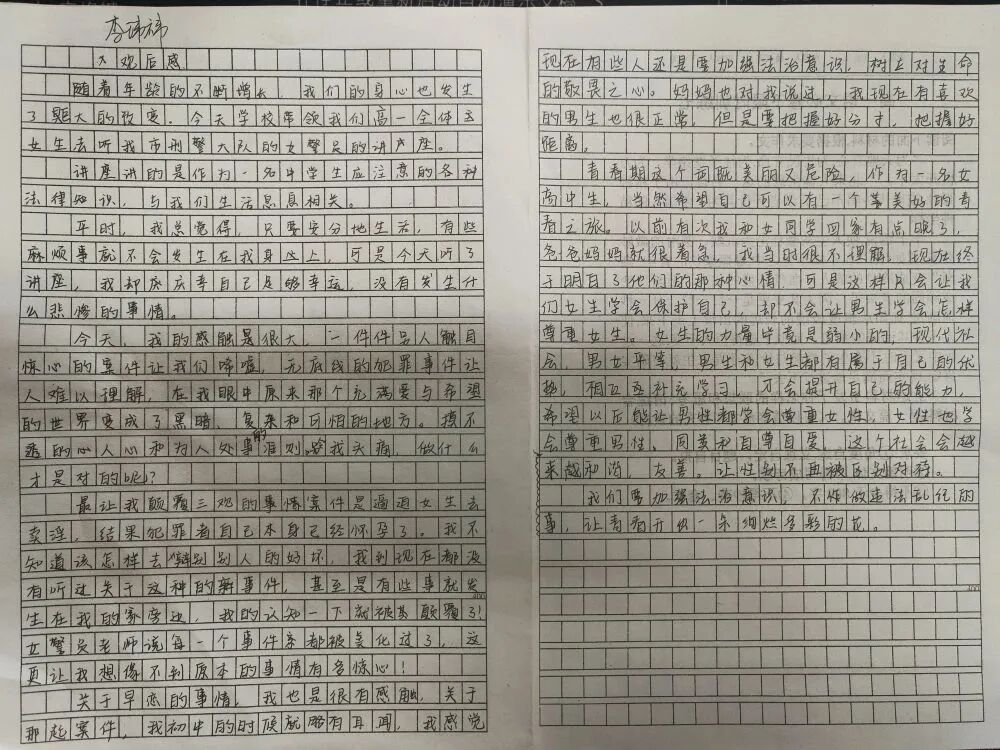 李祎祎
观后感
随着年龄的不断增长，我们的身心也发生
了题大的改变。今天学校带领我们高一全体
女生去听我市刑警大队的女警员的讲座。
讲座讲的是作为一名中学生应注意的各种
法律知识，与我们生活息息相关。
平时，我总觉得，只要安分地生活，有些
麻烦事就不会发生在我身上，可是今天听了
讲座，我却庆幸自己足够幸运，没有发生什
么悲惨的事情。
今天，我的感触是很大，一件件另人触目
惊心的案件让我们唏嘘，无底线的犯罪事件让
人难以理解，在我眼中原来那个充满爱与希望
的世界变成了黑暗、复杂和可怕的地方。摸不
透的心人心和为人处事的准则，令我头痛，做什么
才是对的呢？
最让我颠覆三观的事情案件是逼迫女生去
卖淫，结果犯罪者自己本身已经怀孕了。我不
知道该怎样去辩别别人的好坏，我到现在都没
有听过关于这种的新事件，甚至是有些事就发
生在我的家旁边，我的认知一下就被其颠覆了！
女警员老师说每一个事件亲都被美化过了，这
更让我想像不到原本的事情有多惊心！
关于早恋的事情，我也是很有感触，关于
那起案件，我初中的时候就略有耳闻，我感觉
现在有些人还是要加强法治意识，树立对生命
的敬畏之心。妈妈也对我说过，我现在有喜欢
的男生也很正常，但是要把握好分寸，把握好
距离。
青春期这个词既美丽又危险，作为一名女
高中生，当然希望自己可以有一个美好的青
春之旅。以前有次我和女同学回家有点晚了，
爸爸妈妈就很着急，我当时很不理解，现在终
于明白了他们的那种心情，可是这样只会让我
们女生学会保护自己，却不会让男生学会怎样
尊重女生。女生的力量毕竟是弱小的，现代社
会，男女平等，男生和女生都有属于自己的优
势，相互补充学习，才会提升自己的能力，
希望以后能让男性都学会尊重女性，女性也学
会尊重男性，同美和自尊自爱，这个社会会越
来越和治，友善。让性别不再被区别对待。
我们要加强法治意识，不作做违法乱纪的
事，让青春开出一朵绚烂多彩的花。